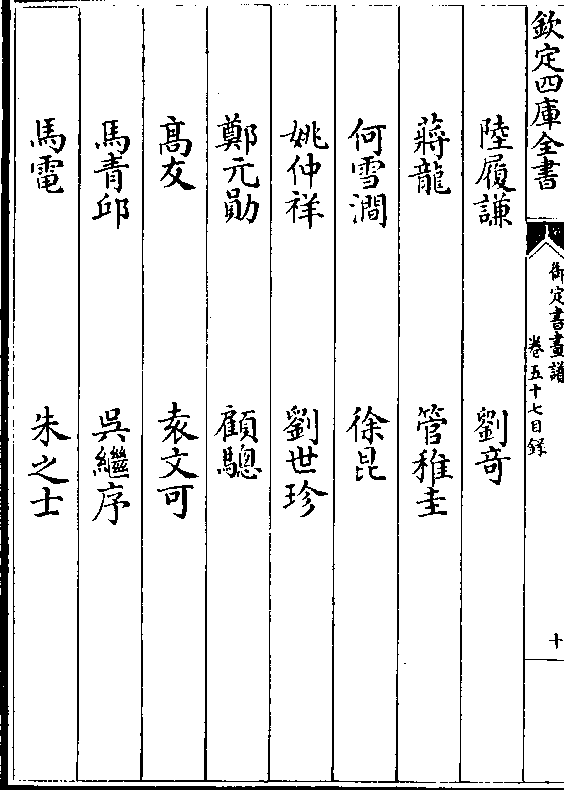 欽定四庫全書
御定書畫譜
卷五十七目錄
十
陸履謙 劉竒
蔣龍 管稚圭
何雪澗 徐昆
姚仲祥 劉世珍
鄭元勛 顧驄
髙友 袁文可
馬青邱 吳繼序
馬電 朱之士